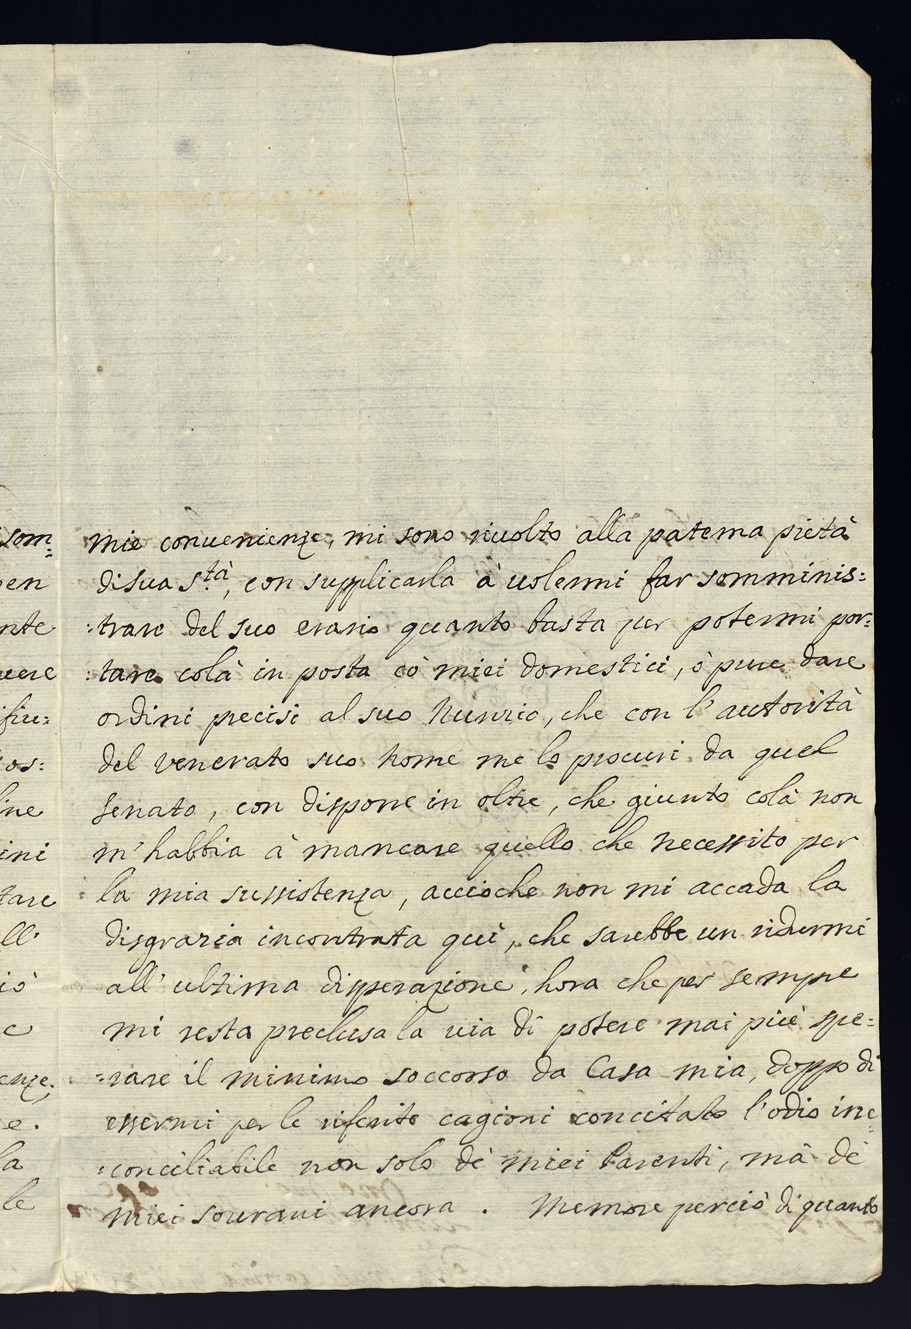 mie conuenienze, mi sono riuolto alla paterna pietà
di sua s.tà, con supplicarla à uolermi far somminis=
=trare del suo erario quanto basta per potermi por=
=tare colà in posta cò miei domestici, ò pure dare
ordini precisi al suo Nunzio, che con l'autorità
del venerato suo nome me lo procuri da quel
senato, con disporre in oltre, che giunto colà non
m'habbia à mancare quello che necessito per
la mia sussistenza, accioche non mi accada la
disgrazia incontrata quì, che sarebbe un ridurmi
all'ultima disperazione, hora che per sempre
mi resta preclusa la uia di potere mai più spe=
=rare il minimo soccorso da Casa mia, doppo di
essermi per le riferite cagioni concitato l'odio irre=
=conciliabile non solo dè miei Parenti, mà dè
miei sourani ancora. Memore perciò di quanto
som=
en
nte
uere
ifiu=
os=
ine
ini
tare
ll'
iò
e
enze,
e.
la
le